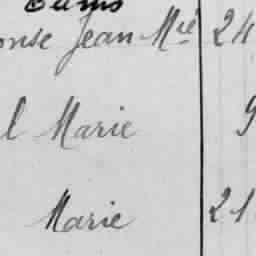 onse Jean Mie 24
l Marie 9
Marie 21